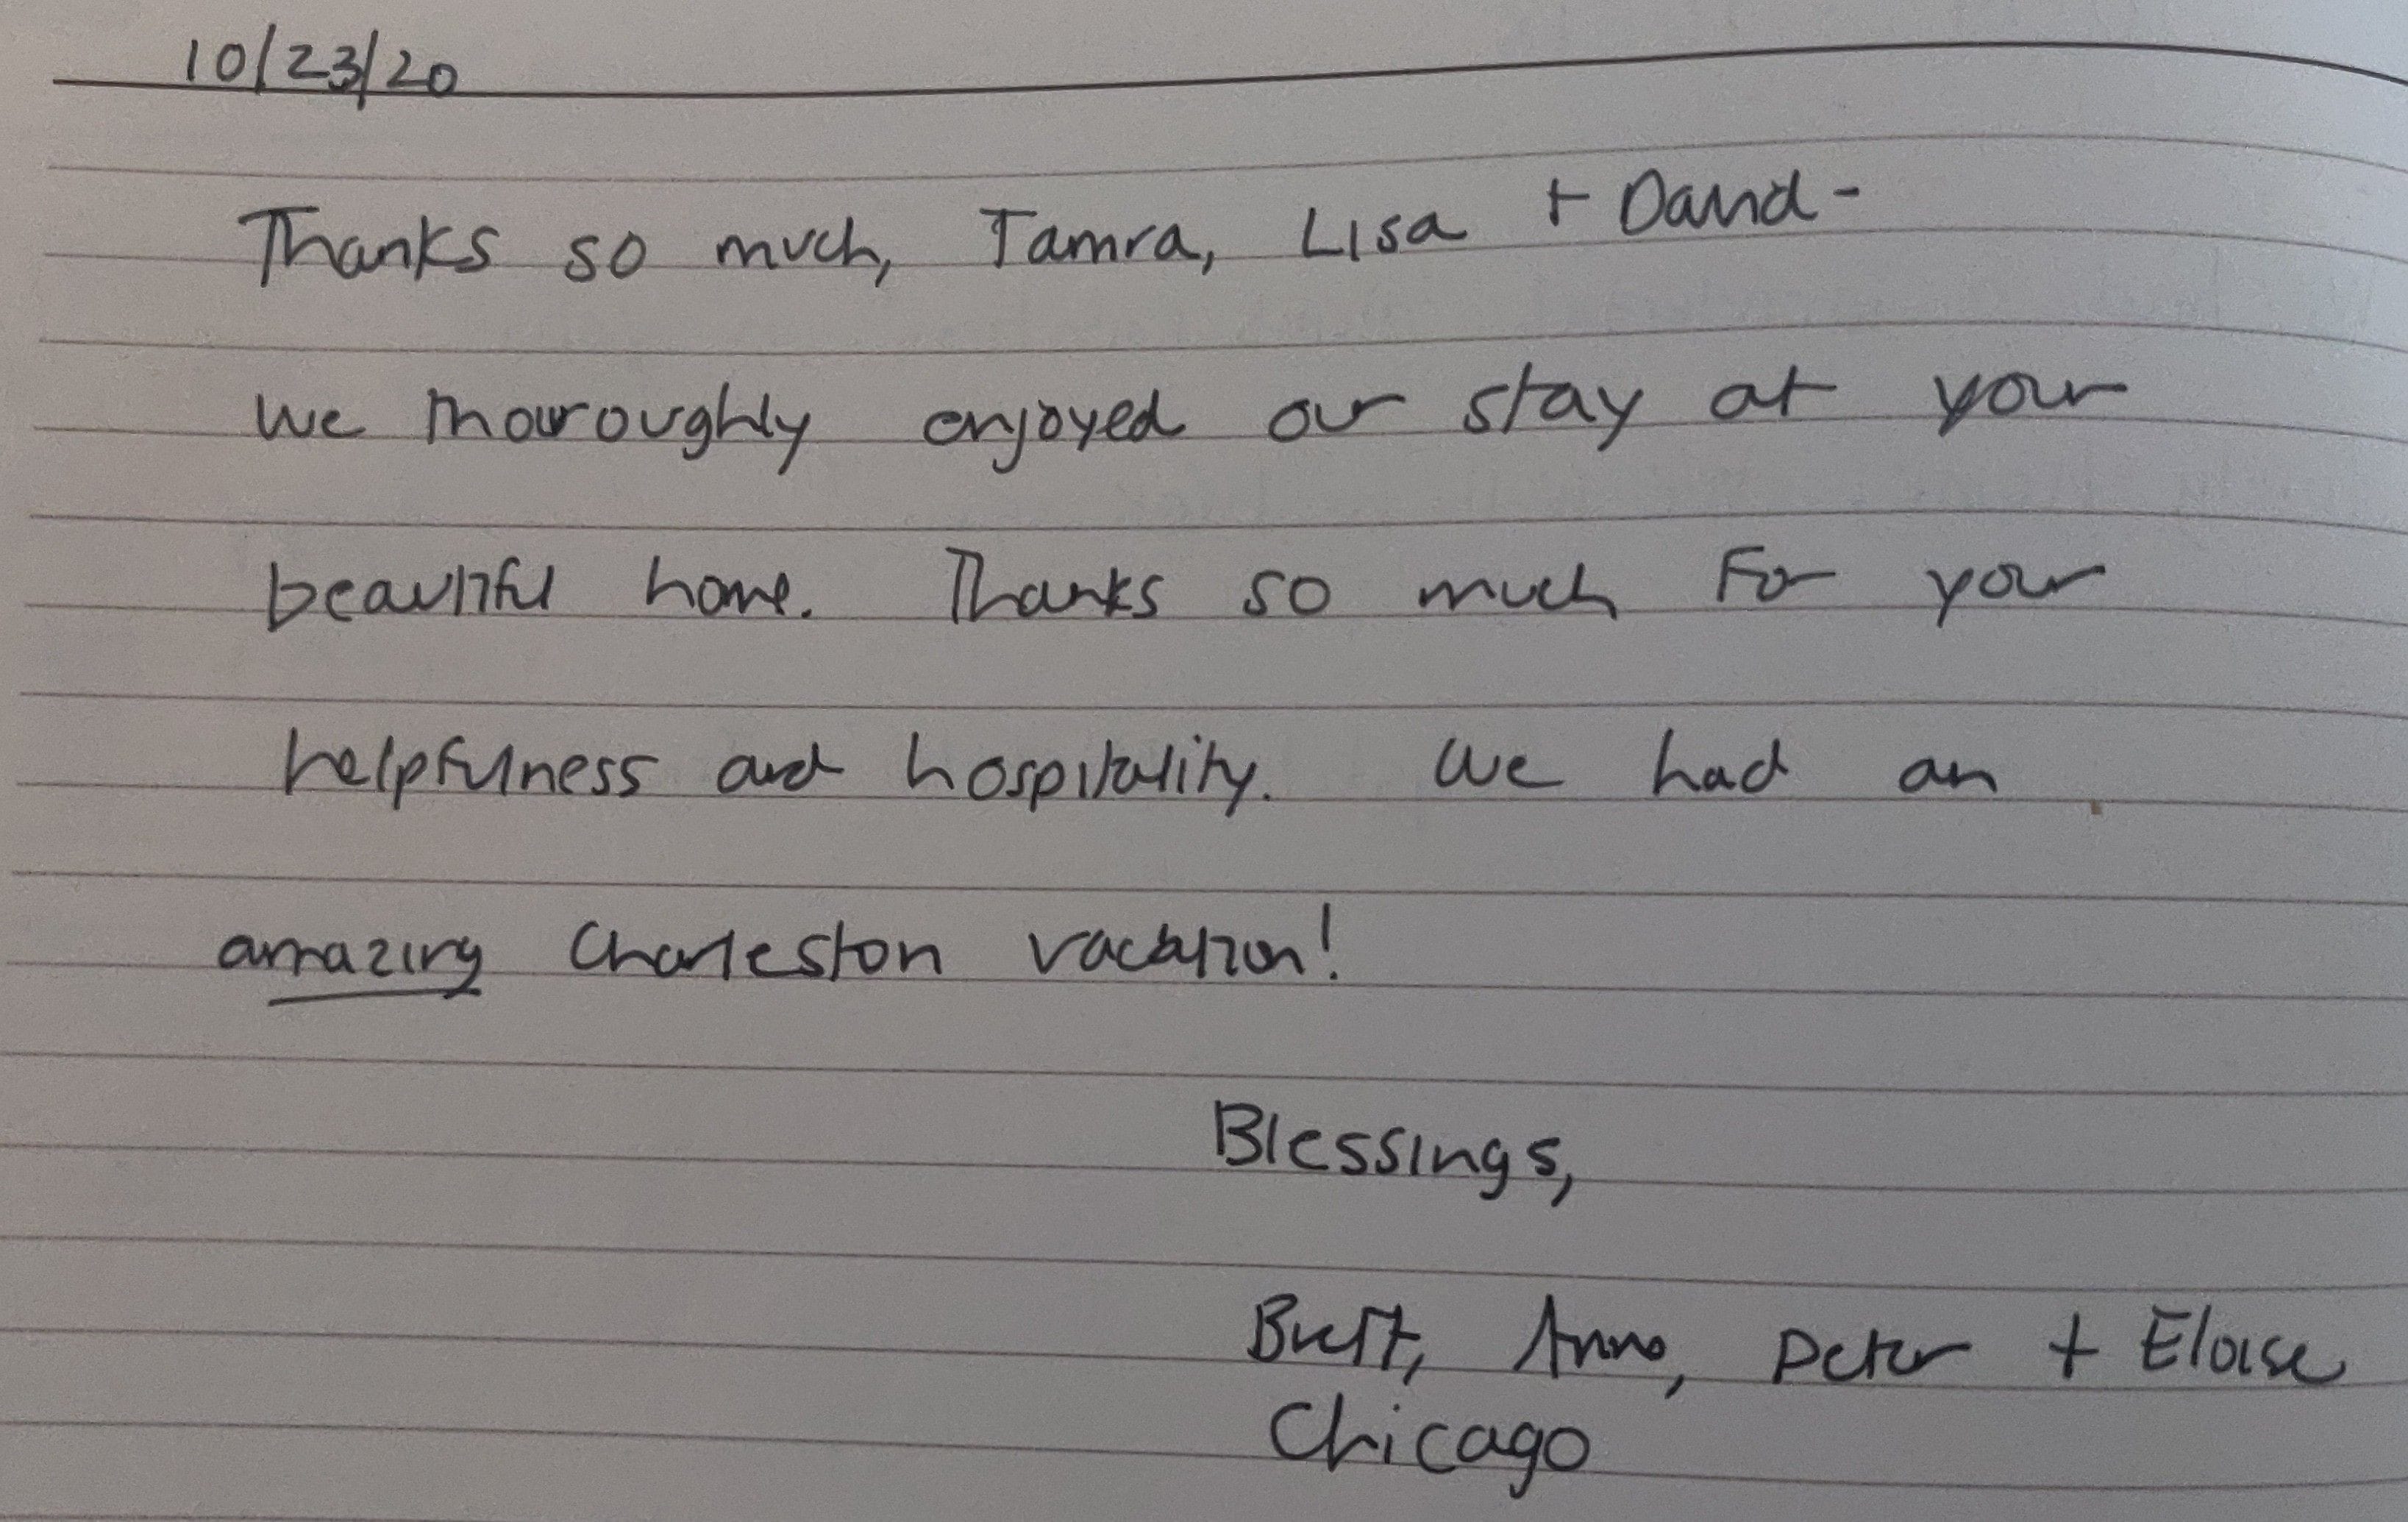 10/23/20
Thanks so much, Tamra, Lisa + David -
We thouroughly enjoyed our stay at your
beautiful home. Thanks so much for your
helpfulness and hospitality. We had an
amazing Charleston vacation!
Blessings,
Brett, Anna, Peter + Eloise
Chicago